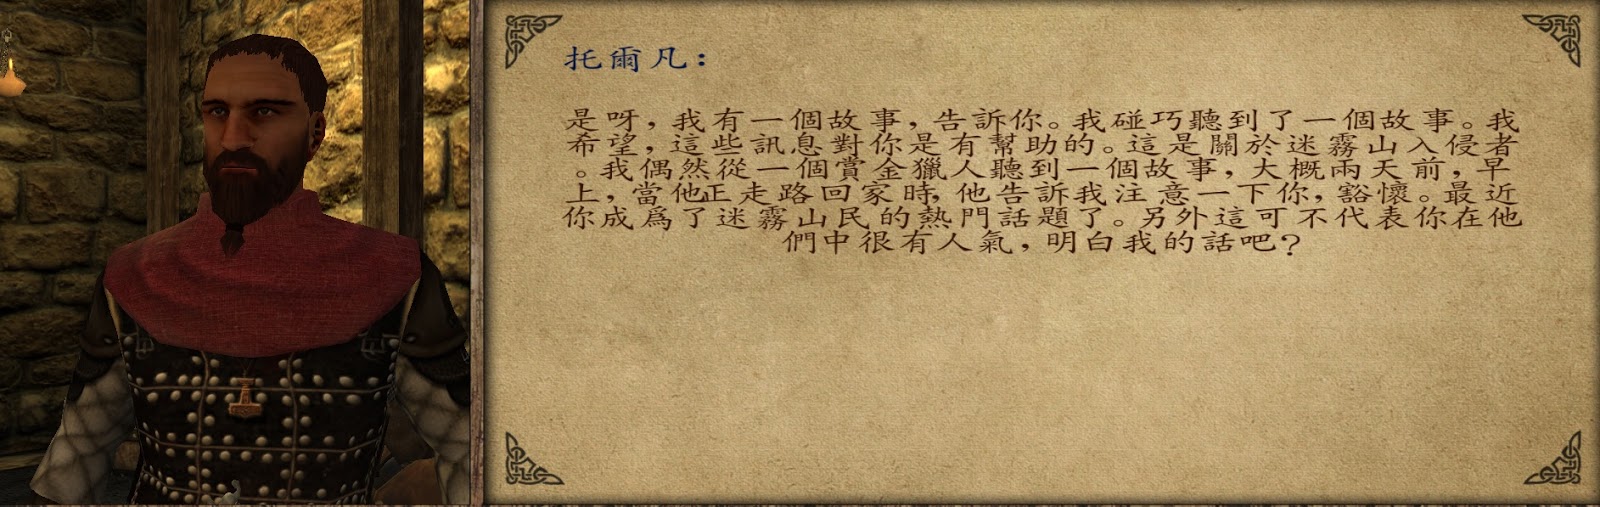 托爾凡：
是呀，我有一個故事，告訴你。我碰巧聽到了一個故事。我
希望，這些訊息對你是有幫助的。這是關於迷霧山入侵者
。我偶然從一個賞金獵人聽到一個故事，大概兩天前，早
上，當他正走路回家時，他告訴我注意一下你，豁懷。最近
你成爲了迷霧山民的熱門話題了。另外這可不代表你在他
們中很有人氣，明白我的話吧？